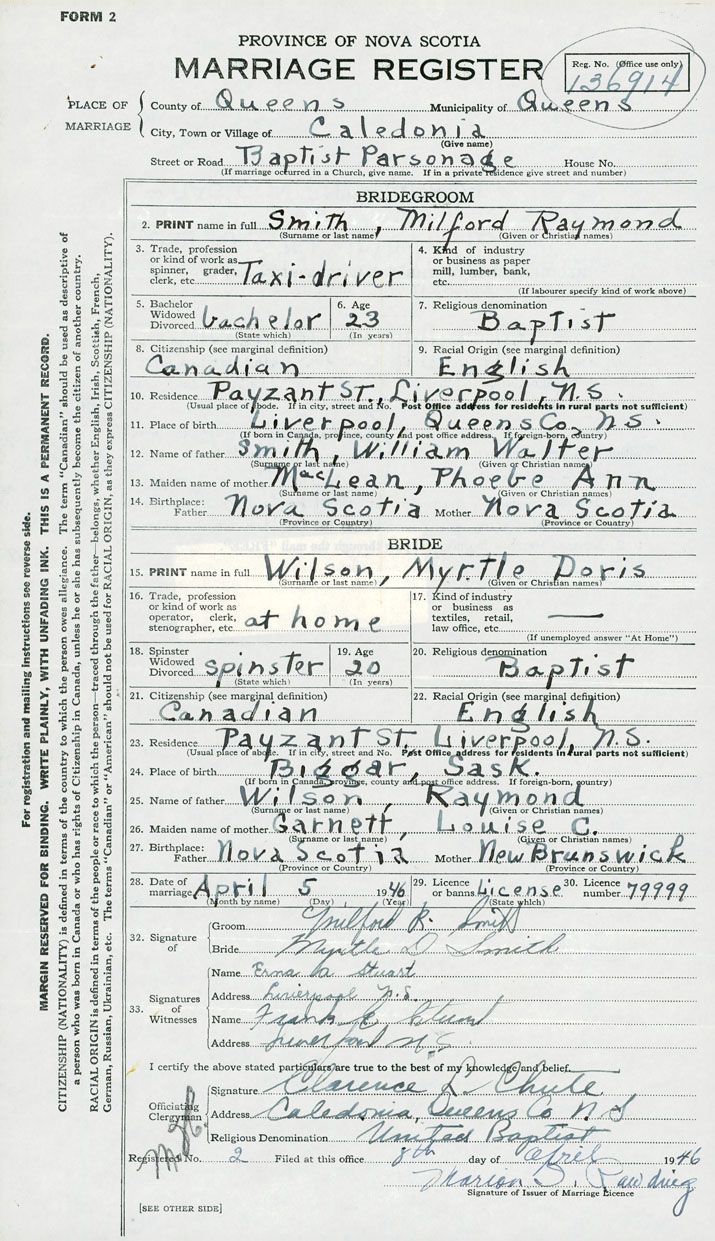 FORM 2
PROVINCE OF NOVA SCOTIA
MARRIAGE REGISTER
Reg. No. (Office use only)
136914
PLACE OF MARRIAGE
County of Queens Municipality of Queens
City, Town or Village of Caledonia
(Give name)
Street or Road Baptist Parsonage House No.
(If marriage occurred in a Church, give name. If in a private residence give street and number)
BRIDEGROOM
2. PRINT name in full Smith, Milford Raymond
(Surname or last name) (Given or Christian names)
3. Trade, profession or kind of work as spinner, grader, clerk, etc. Taxi-driver
4. Kind of industry or business as paper mill, lumber, bank, etc.
(If labourer specify kind of work above)
5. Bachelor Widowed Divorced bachelor
(State which)
6. Age 23
(In years)
7. Religious denomination
Baptist
8. Citizenship (see marginal definition)
Canadian
9. Racial Origin (see marginal definition)
English
10. Residence Payzant St., Liverpool, N.S.
(Usual place of abode. If in city, street and No. Post Office address for residents in rural parts not sufficient)
11. Place of birth Liverpool, Queens Co., N.S.
(If born in Canada, province, county and post office address. If foreign-born, country)
12. Name of father Smith, William Walter
(Surname or last name) (Given or Christian names)
13. Maiden name of mother MacLean, Phoebe Ann
(Surname or last name) (Given or Christian names)
14. Birthplace: Father Nova Scotia Mother Nova Scotia
(Province or Country) (Province or Country)
BRIDE
15. PRINT name in full Wilson, Myrtle Doris
(Surname or last name) (Given or Christian names)
16. Trade, profession or kind of work as operator, clerk, stenographer, etc. at home
17. Kind of industry or business as textiles, retail, law office, etc. —
(If unemployed answer "At Home")
18. Spinster Widowed Divorced spinster
(State which)
19. Age 20
(In years)
20. Religious denomination
Baptist
21. Citizenship (see marginal definition)
Canadian
22. Racial Origin (see marginal definition)
English
23. Residence Payzant St, Liverpool, N.S.
(Usual place of abode. If in city, street and No. Post Office address for residents in rural parts not sufficient)
24. Place of birth Biggar, Sask.
(If born in Canada, province, county and post office address. If foreign-born, country)
25. Name of father Wilson, Raymond
(Surname or last name) (Given or Christian names)
26. Maiden name of mother Garnett, Louise C.
(Surname or last name) (Given or Christian names)
27. Birthplace: Father Nova Scotia Mother New Brunswick
(Province or Country) (Province or Country)
28. Date of marriage April 5 1946
(Month by name) (Day) (Year)
29. Licence or banns License
(State which)
30. Licence number 79999
32. Signature of
Groom Milford R. Smith
Bride Myrtle D Smith
33. Signatures of Witnesses
Name Erna Stuart
Address Liverpool N.S.
Name Frank Stuart
Address Liverpool N.S.
I certify the above stated particulars are true to the best of my knowledge and belief.
Officiating Clergyman
Signature Clarence L. Chute
Address Caledonia, Queens Co N S
Religious Denomination United Baptist
Registered No. 2 Filed at this office 8th day of April 1946
Marion
Signature of Issuer of Marriage Licence
[SEE OTHER SIDE]
For registration and mailing instructions see reverse side.
MARGIN RESERVED FOR BINDING. WRITE PLAINLY, WITH UNFADING INK. THIS IS A PERMANENT RECORD.
CITIZENSHIP (NATIONALITY) is defined in terms of the country to which the person owes allegiance. The term "Canadian" should be used as descriptive of
a person who was born in Canada or who has rights of Citizenship in Canada, unless he or she has subsequently become the citizen of another country.
RACIAL ORIGIN is defined in terms of the people or race to which the person—traced through the father—belongs, whether English, Irish, Scottish, French,
German, Russian, Ukrainian, etc. The terms "Canadian" or "American" should not be used for RACIAL ORIGIN, as they express CITIZENSHIP (NATIONALITY).